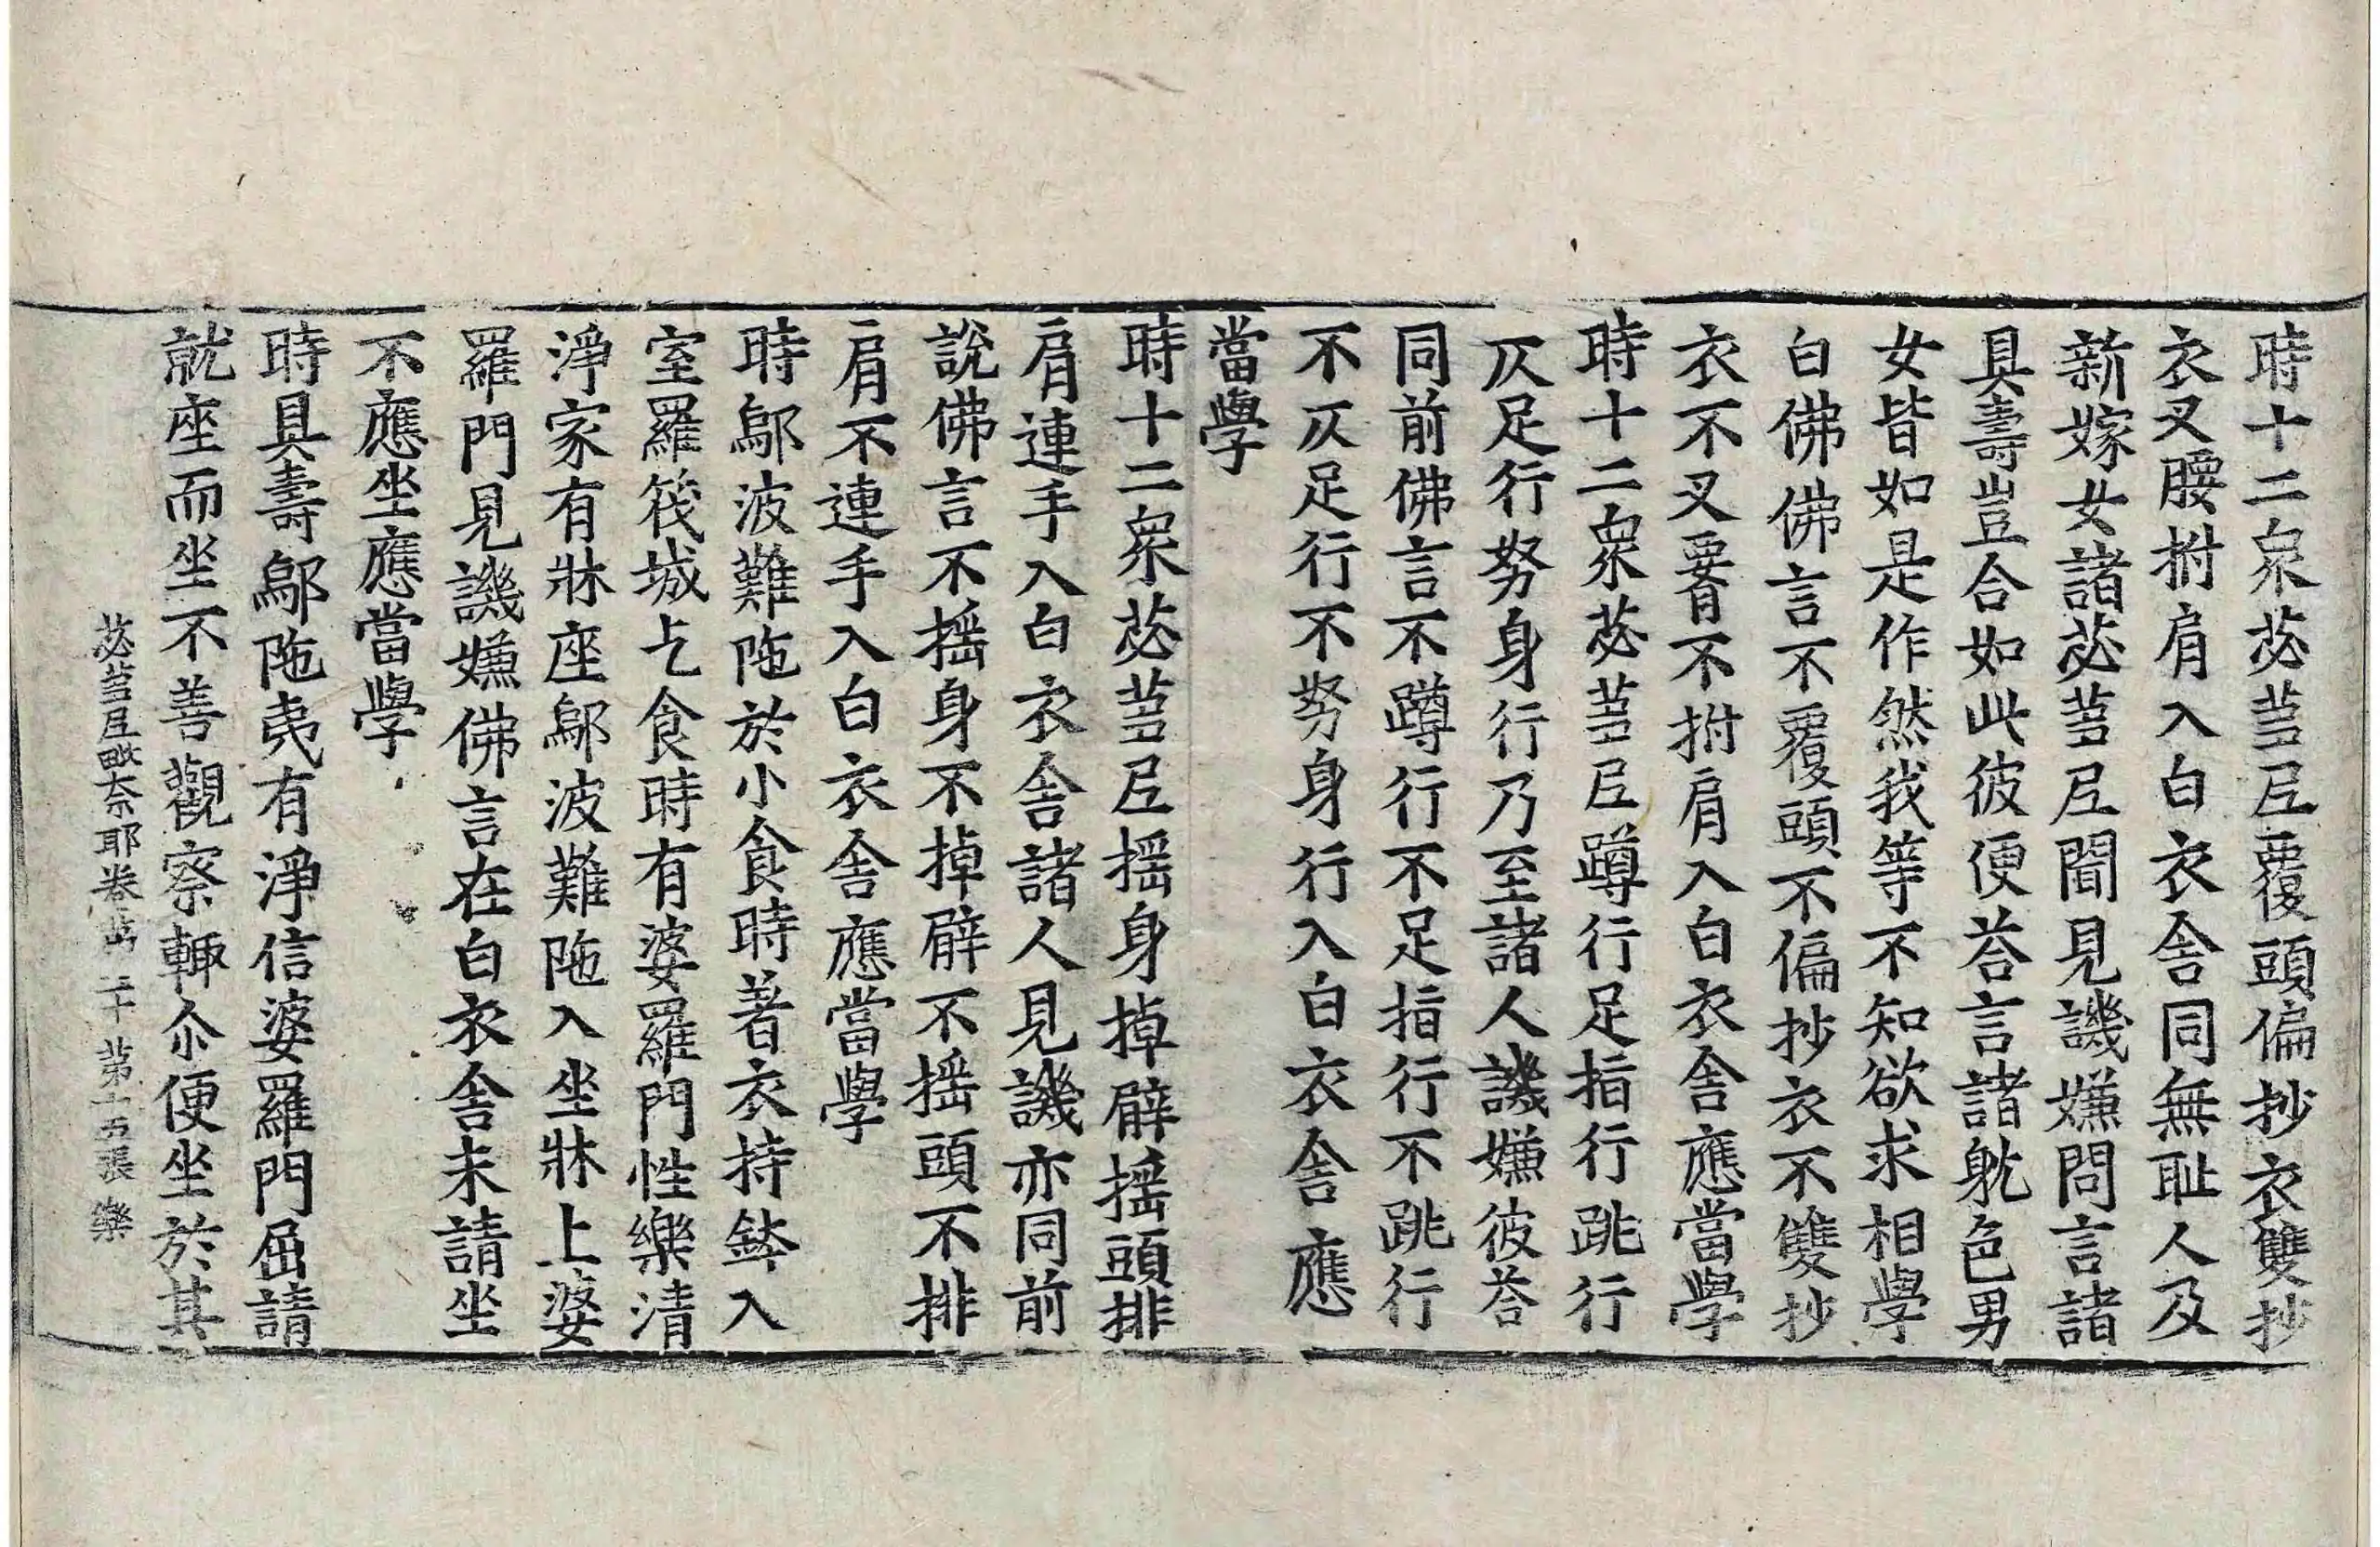 時十二衆苾蒭尼覆頭偏抄衣雙抄
衣叉腰拊肩入白衣舍同無耻人及
新嫁女諸苾蒭尼聞見譏嫌問言諸
具壽豈合如此彼便荅言諸躭色男
女皆如是作然我等不知欲求相學
白佛佛言不覆頭不偏抄衣不雙抄
衣不叉𦝫不拊肩入白衣舍應當學
時十二衆苾蒭尼蹲行足指行跳行
仄足行努身行乃至諸人譏嫌彼荅
同前佛言不蹲行不足指行不跳行
不仄足行不努身行入白衣舍應
當學
時十二衆苾蒭尼揺身掉臂揺頭排
肩連手入白衣舍諸人見譏亦同前
說佛言不揺身不掉臂不揺頭不排
肩不連手入白衣舍應當學
時鄔波難陁於小食時著衣持鉢入
室羅筏城乞食時有婆羅門性樂清
淨家有牀座鄔波難陁入坐牀上婆
羅門見譏嫌佛言在白衣舍未請坐
不應坐應當學
時具壽鄔陁夷有淨信婆羅門屈請
就座而坐不善觀察輙尒便坐於其
苾蒭尼毗奈耶卷第二十 第十五張 樂